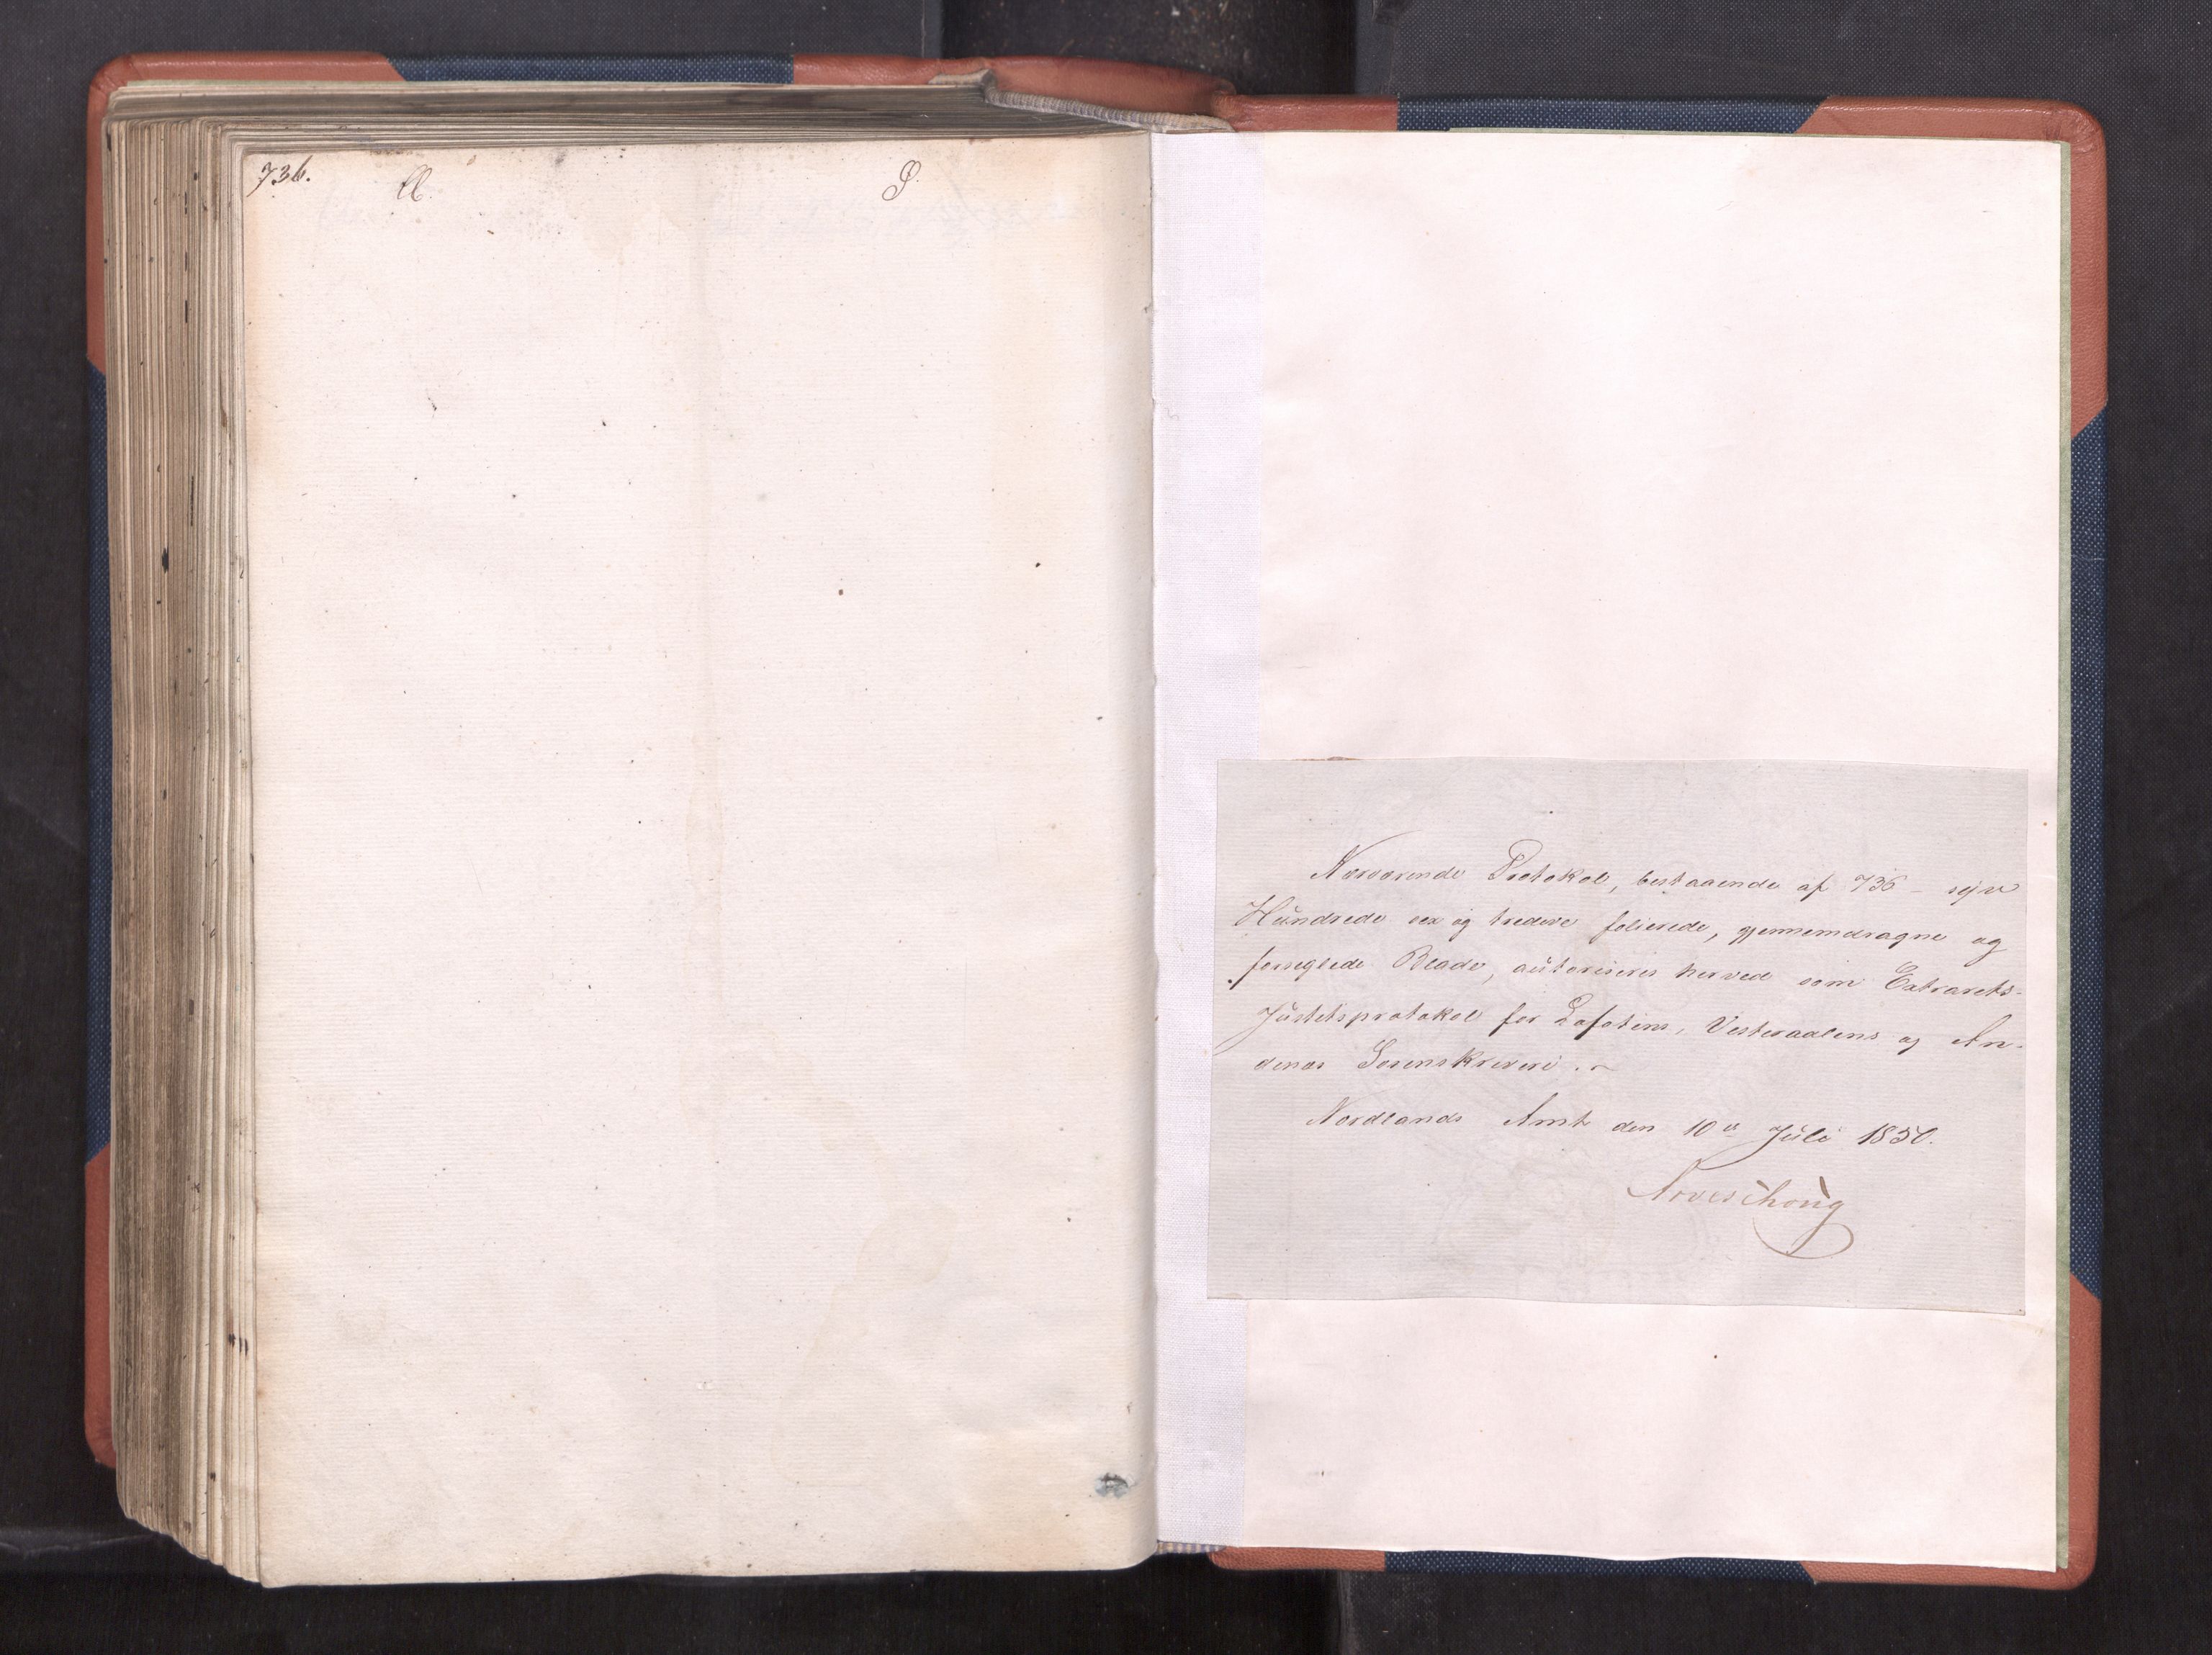 736.
Nærværende Protokol, bestaaende af 736 – syv
Hundrede sex og tredive folierede, gjennemdragne og
forseglede Blade, autoriseres herved som Extrarets-
Justitsprotokol for Lofotens, Vesteraalens og An-
denæs Sorenskriveri.
Nordlands Amt den 10de Juli 1850.